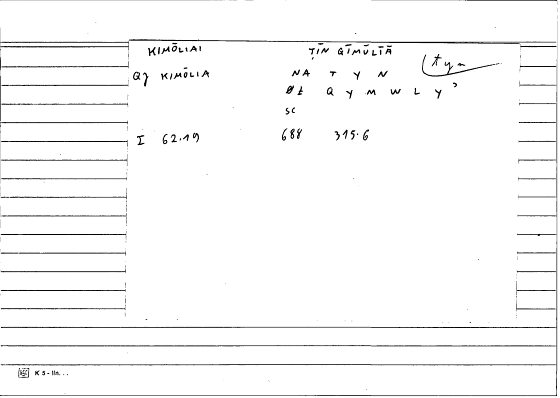 KIMŌLIAI ṬĪN QĪMŪLĪĀ
Qγ KIMŌLIA NA T Y N
Øł Q Y M W L Y ʾ
SC
I 62.19 688 315.6
K 5 - lin. . .